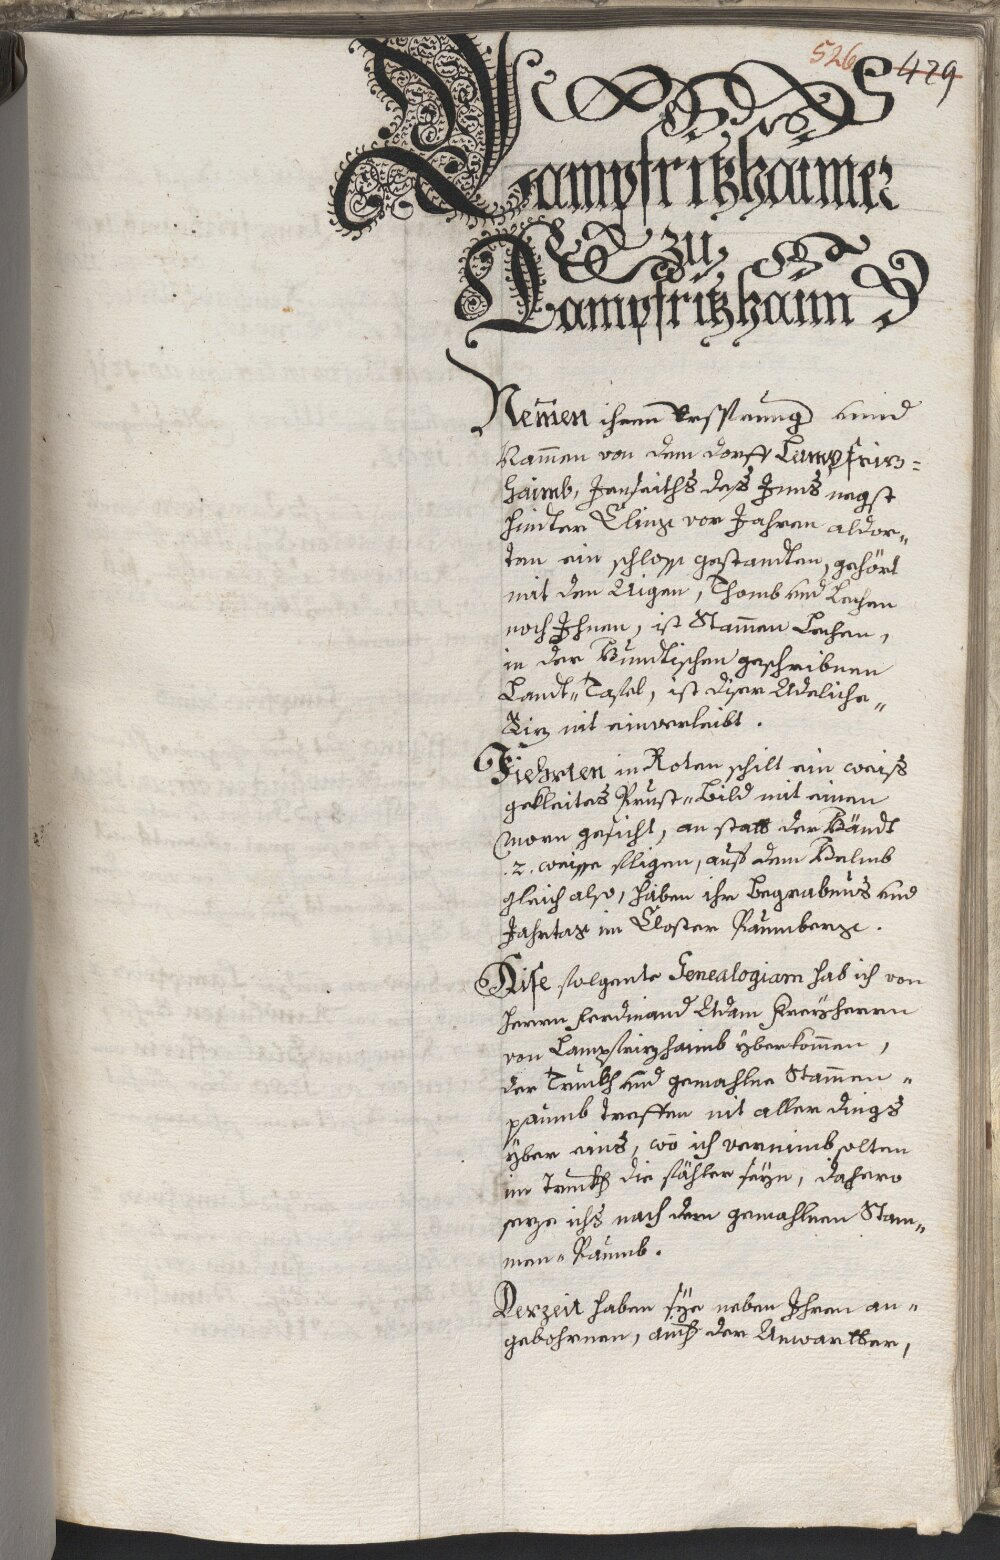 526 429
Lampfritzhaimer
zu
Lampfritzhaim
Nemen ihren Ursprung vnnd
Nammen von dem dorff Lampfriz=
haimb, Jenseiths deß Innß negst
hindter Cling vor Jahren aldor„
ten ein schloß gestandten, gehört
mit den Aigen, Thomb vnd Lechen
noch Ihnen, ist Stammen Lechen,
in der Hundtischen geschribnen
Landt„Tafel, ist diser Adeliche„
Siz nit einverleibt.
Fiehrten in Roten schilt ein weiß
gekleites Prust„Bild mit einen
morn gesicht, an statt der Händt
.2. weisse fligen, auf dem Helmb
gleich also, haben ihr Begrabnus vnd
Jahrtag im Closter Baumburg.
Dise folgente Genealogiam hab ich von
Herrn Ferdinand Adam Freyherrn
von Lampfrizhaimb yberkommen,
der Truckh vnd gemahlne Stammen„
paumb treffen nit aller dings
yber eins, wo ich vernimb solten
im Truckh die fähler seyn, dahero
seze ichs nach dem gemahlnen Stam„
men„Baumb.
Derzeit haben sye neben Ihren an„
gebohrnen, auch der Auwartter,